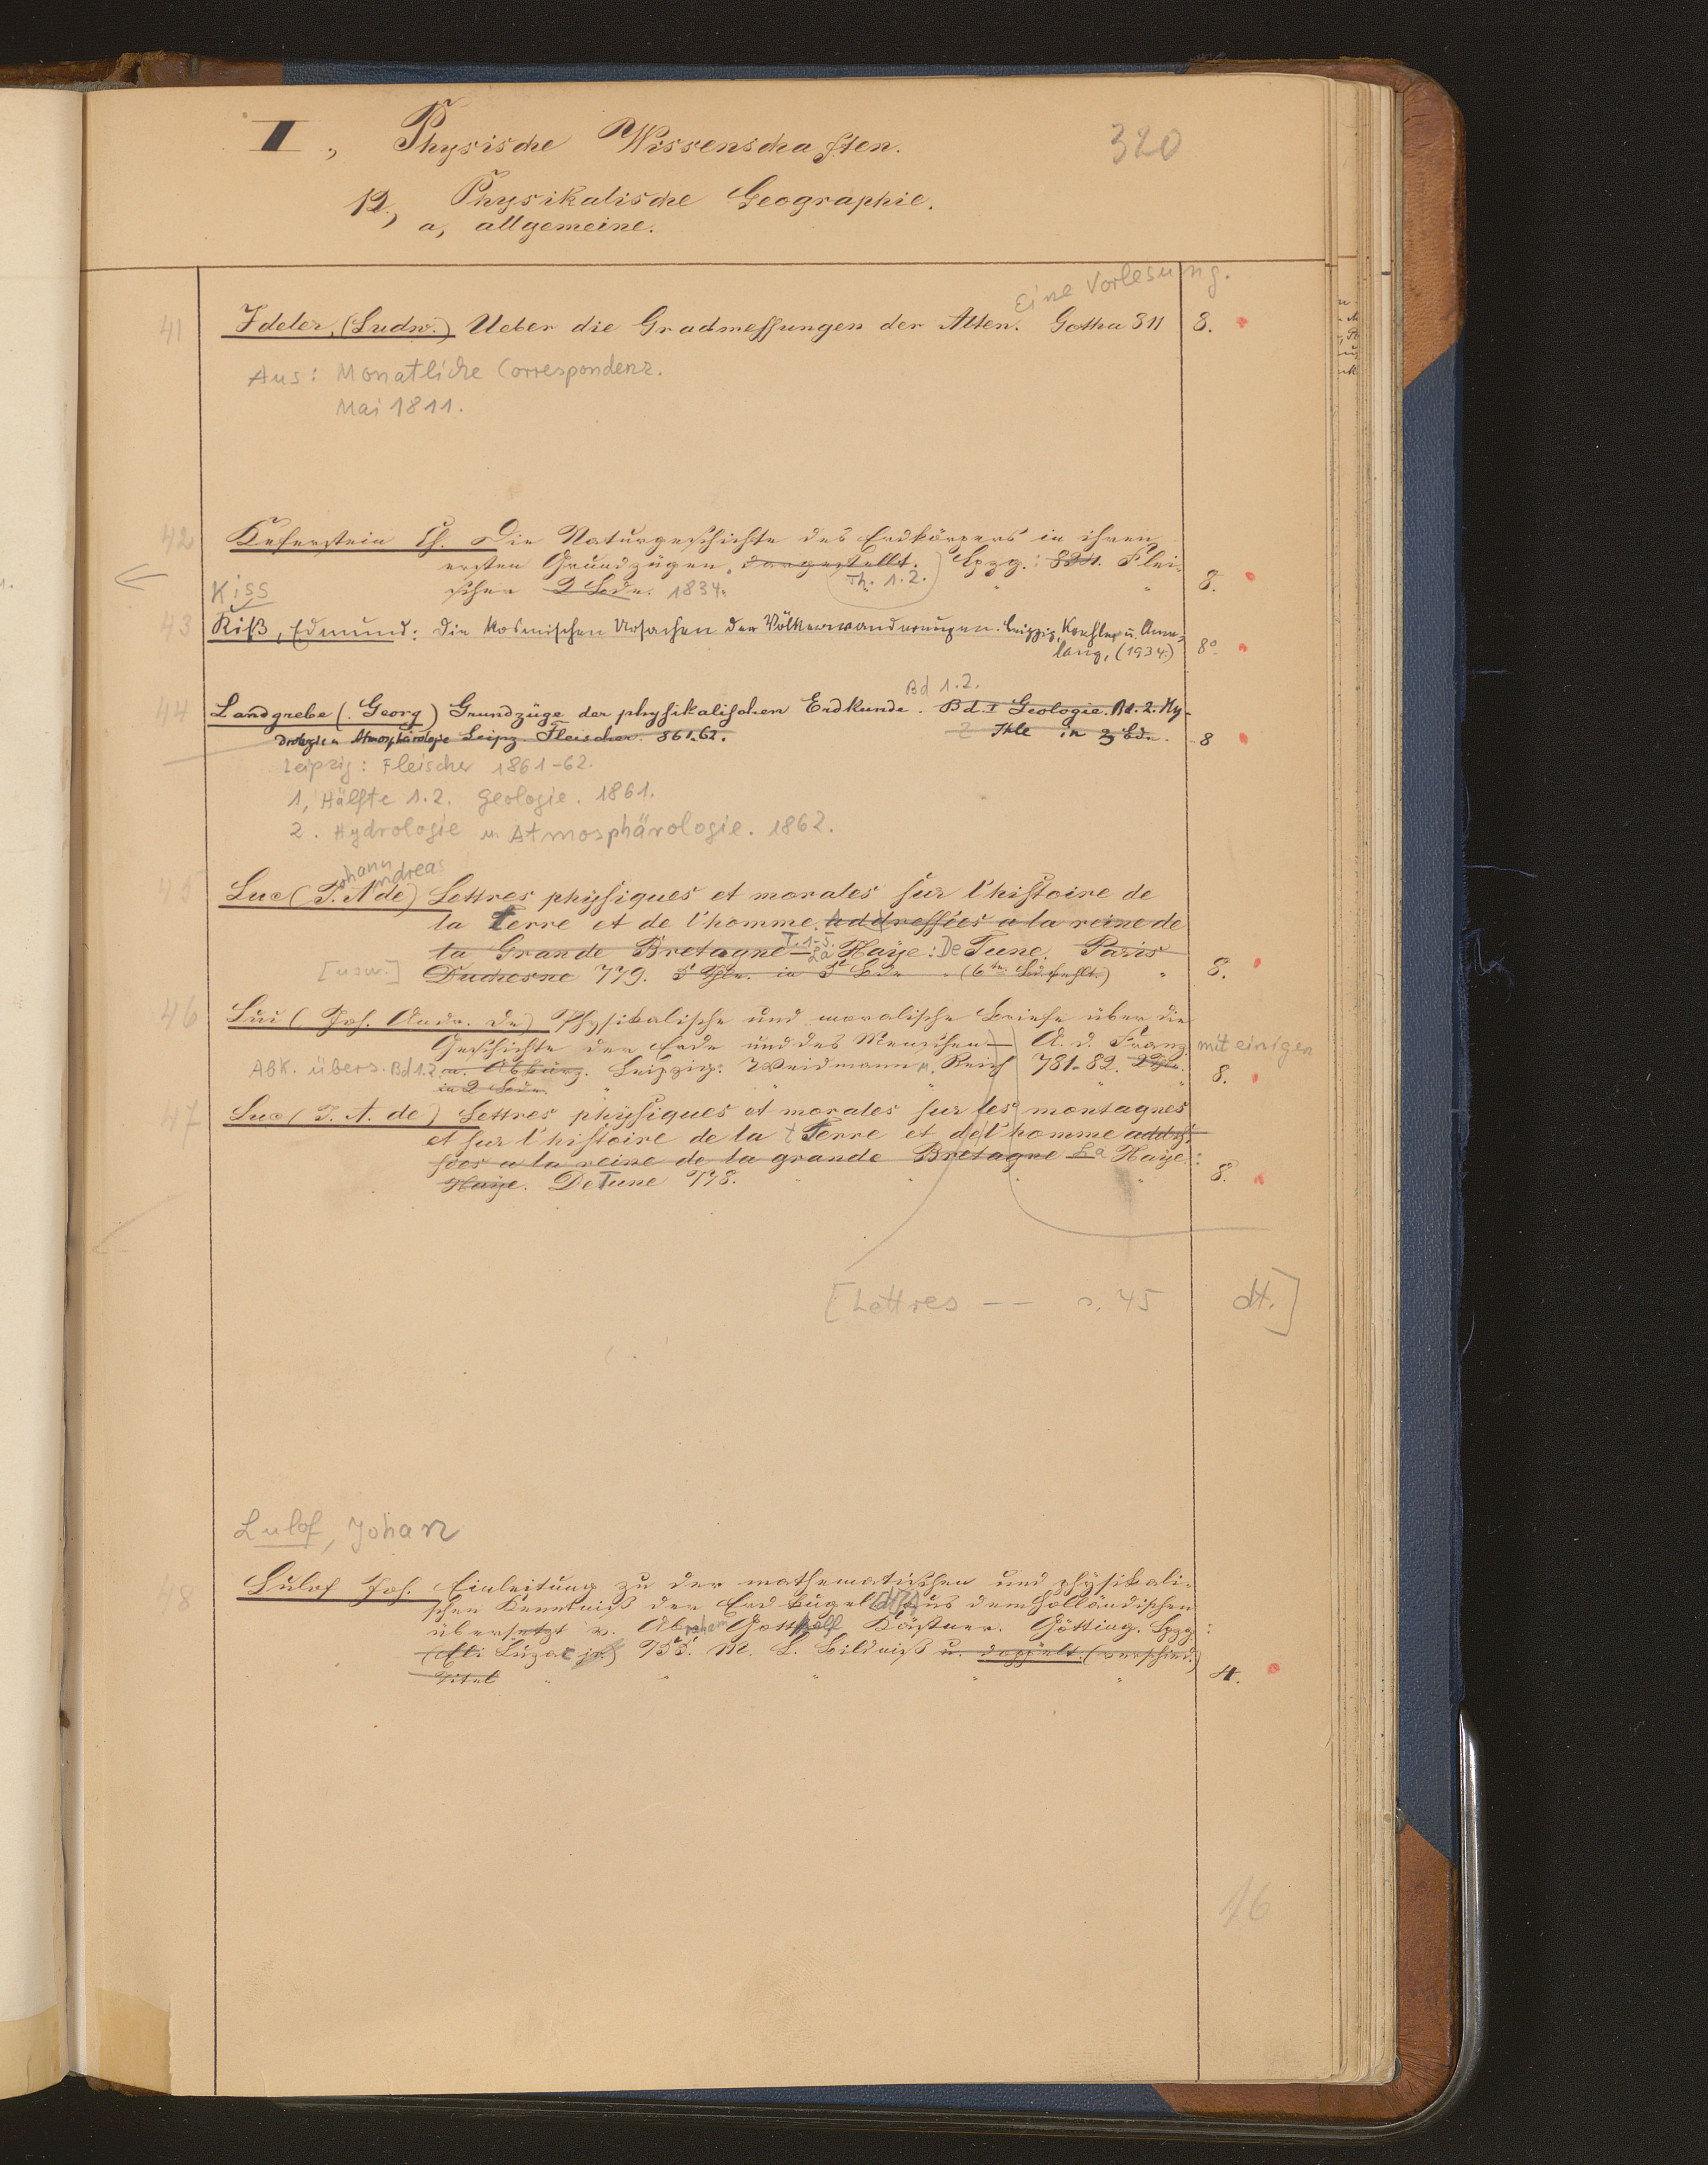 I, Physische Wissenschaften. 320
12, Physikalische Geographie.
a, allgemeine.
Eine Vorlesung.
41 Ideler, (Ludw.) Ueber die Gradmessungen der Alten. Gotha 811 8.
Aus: Monatliche Correspondenz.
Mai 1811.
42 Keferstein Ch. Die Naturgeschichte des Erdkörpers in ihren
ersten Grundzügen, dargestellt. Lpzg.: 834. Flei-
scher 2 Bde. 1834. Th. 1.2. 8.
Kiss
43 Kiß, Edmund: Die kosmischen Ursachen der Völkerwanderungen. Leipzig, Koehler u. Ame-
lang, (1934.) 8°.
Bd 1.2.
44 Landgrebe (Georg) Grundzüge der physikalischen Erdkunde. Bd. I Geologie. Bd. 2. Hy-
drologie u Atmosphärologie Leipz. Fleischer. 861.62. 2 Thle in 3 Bdn. 8
Leipzig: Fleischer 1861-62.
1, Hälfte 1.2. Geologie. 1861.
2. Hydrologie u. Atmosphärologie. 1862.
ohann ndreas
45 Luc (J. A de) Lettres physiques et morales sur l'histoire de
la terre et de l'homme. addressées a la reine de
la Grande Bretagne – T. 1-5. La Haye: De Tune. Paris
[usw.] Duchesne 779. 5 Thle. in 5 Bde (6te Bd. fehlt.) 8.
46 Luc (Joh. Andr. de) Physikalische und moralische Briefe über die
Geschichte der Erde und des Menschen – A. d. Franz. mit einigen
Abk. übers. Bd 1.2. m. Abkürz. Leipzig: Weidmann u. Reich 781-82. 2 Thle.
in 2 Bde. 8.
47 Luc (J. A. de) Lettres physiques et morales sur les montagnes
et sur l'histoire de la terre et de l'homme addres-
sées a la reine de la grande Bretagne La Haye:
Haye. De Tune 778. 8.
[Lettres -- s. 45 dt.]
Lulof, Johan
48 Lulof Joh. Einleitung zu der mathematischen und physikali-
schen Kenntniß der Erdkugel aus dem Holländischen
übersetzt v. Abraham Gotthelf Kästner. Götting. Lpzg:
(Eli Luzac jr) 755. M. L. Bildniß u. doppelt. (verschied.)
Titel 4.
16